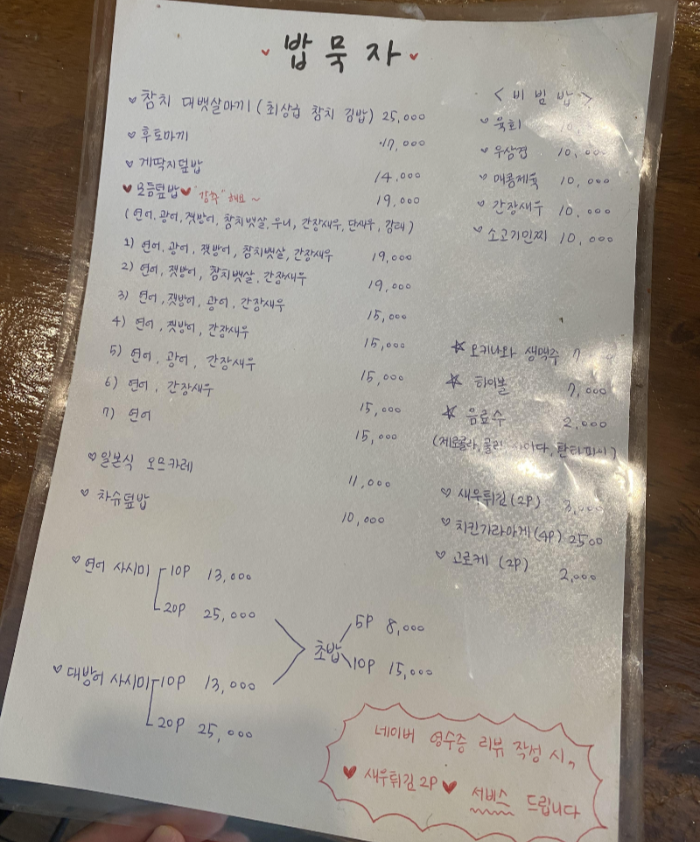 밥묵자
참치 대뱃살마끼 (최상급 참치 김밥) 25,000
후토마끼 17,000
게딱지덮밥 14,000
모듬덮밥 "강추" 해요~ 19,000
(연어, 광어, 잿방어, 참치뱃살, 우니, 간장새우, 단새우, 감태)
1) 연어, 광어, 잿방어, 참치뱃살, 간장새우 19,000
2) 연어, 잿방어, 참치뱃살, 간장새우 19,000
3) 연어, 잿방어, 광어, 간장새우 15,000
4) 연어, 잿방어, 간장새우 15,000
5) 연어, 광어, 간장새우 15,000
6) 연어, 간장새우 15,000
7) 연어 15,000
일본식 오므카레 11,000
차슈덮밥 10,000
연어 사시미 10P 13,000
20P 25,000
대방어 사시미 10P 13,000
20P 25,000
초밥 5P 8,000
10P 15,000
<비빔밥>
육회
우삼겹 10,000
매콤제육 10,000
간장새우 10,000
소고기인찌 10,000
오키나와 생맥주 7
하이볼 7,000
음료수 2,000
(제로콜라, 콜라, 사이다, 환타파인)
새우튀김 (2P) 3,000
치킨가라아게 (4P) 2500
고로케 (2P) 2,000
네이버 영수증 리뷰 작성 시,
새우튀김 2P
서비스 드립니다